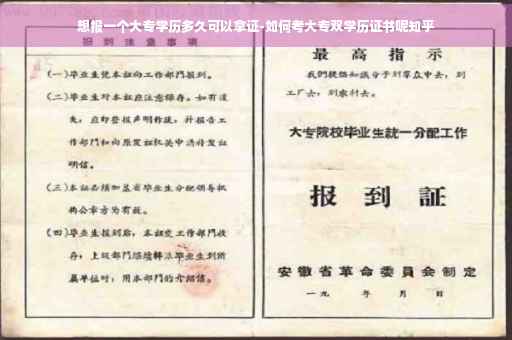 想报一个大专学历多久可以拿证-如何考大专双学历证书呢知乎
报到注意事项
(一)毕业生凭本证向工作部门报到。
(二)毕业生对本证应注意保存。如有遗
失,应即登报声明作废,并报告工
作部门和向原发证机关申请补发证
明信。
(三)本证必须加盖省毕业生分配领导机
构公章方为有效。
(四)毕业生报到后,本证交工作部门收
存;上级部门继续转派毕业生到所
属单位时,用本部门的介绍信。
最高指示
我们提倡知识分子到群众中去,到
工厂去,到农村去。
大专院校毕业生统一分配工作
报到证
安徽省革命委员会制定
一九 年 月 日